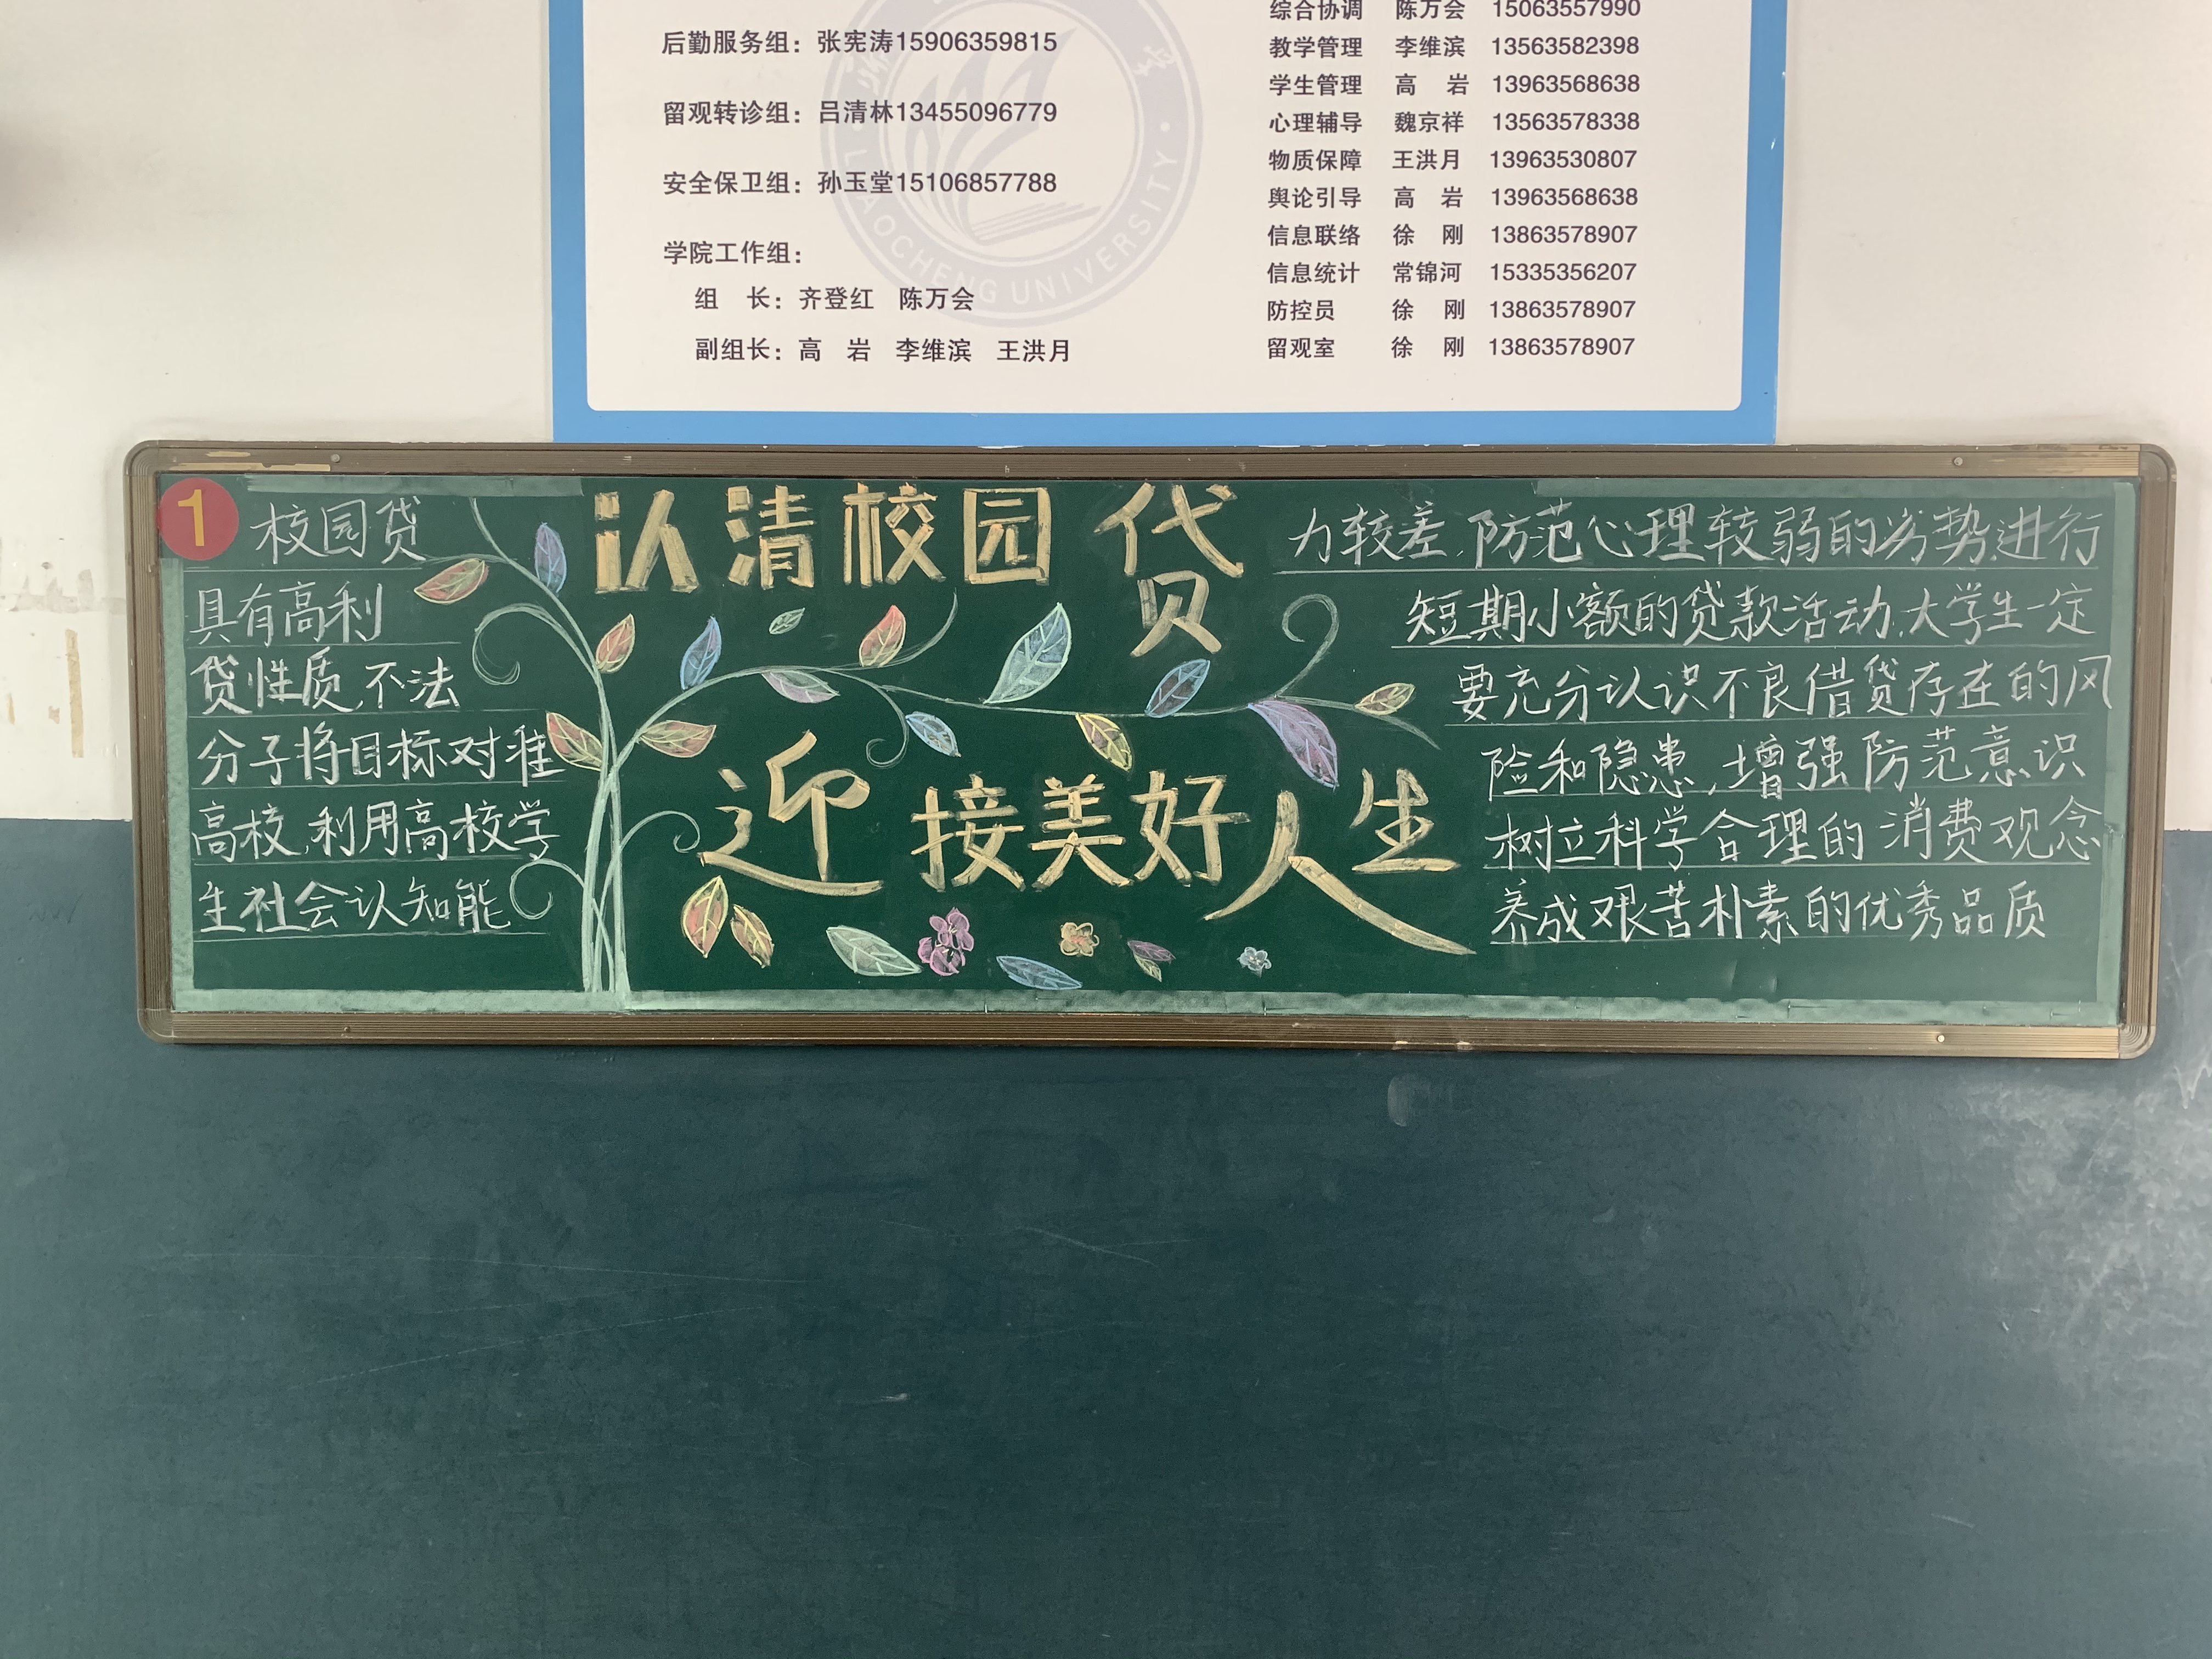 后勤服务组：张宪涛15906359815
留观转诊组：吕清林13455096779
安全保卫组：孙玉堂15106857788
学院工作组：
组　长：齐登红　陈万会
副组长：高　岩　李维滨　王洪月
综合协调　陈万会　15063557990
教学管理　李维滨　13563582398
学生管理　高　岩　13963568638
心理辅导　魏京祥　13563578338
物质保障　王洪月　13963530807
舆论引导　高　岩　13963568638
信息联络　徐　刚　13863578907
信息统计　常锦河　15335356207
防控员　徐　刚　13863578907
留观室　徐　刚　13863578907
LIAOCHENG UNIVERSITY
1
认清校园贷
迎接美好人生
校园贷
具有高利
贷性质,不法
分子将目标对准
高校,利用高校学
生社会认知能
力较差,防范心理较弱的劣势,进行
短期小额的贷款活动,大学生一定
要充分认识不良借贷存在的风
险和隐患,增强防范意识
树立科学合理的消费观念
养成艰苦朴素的优秀品质